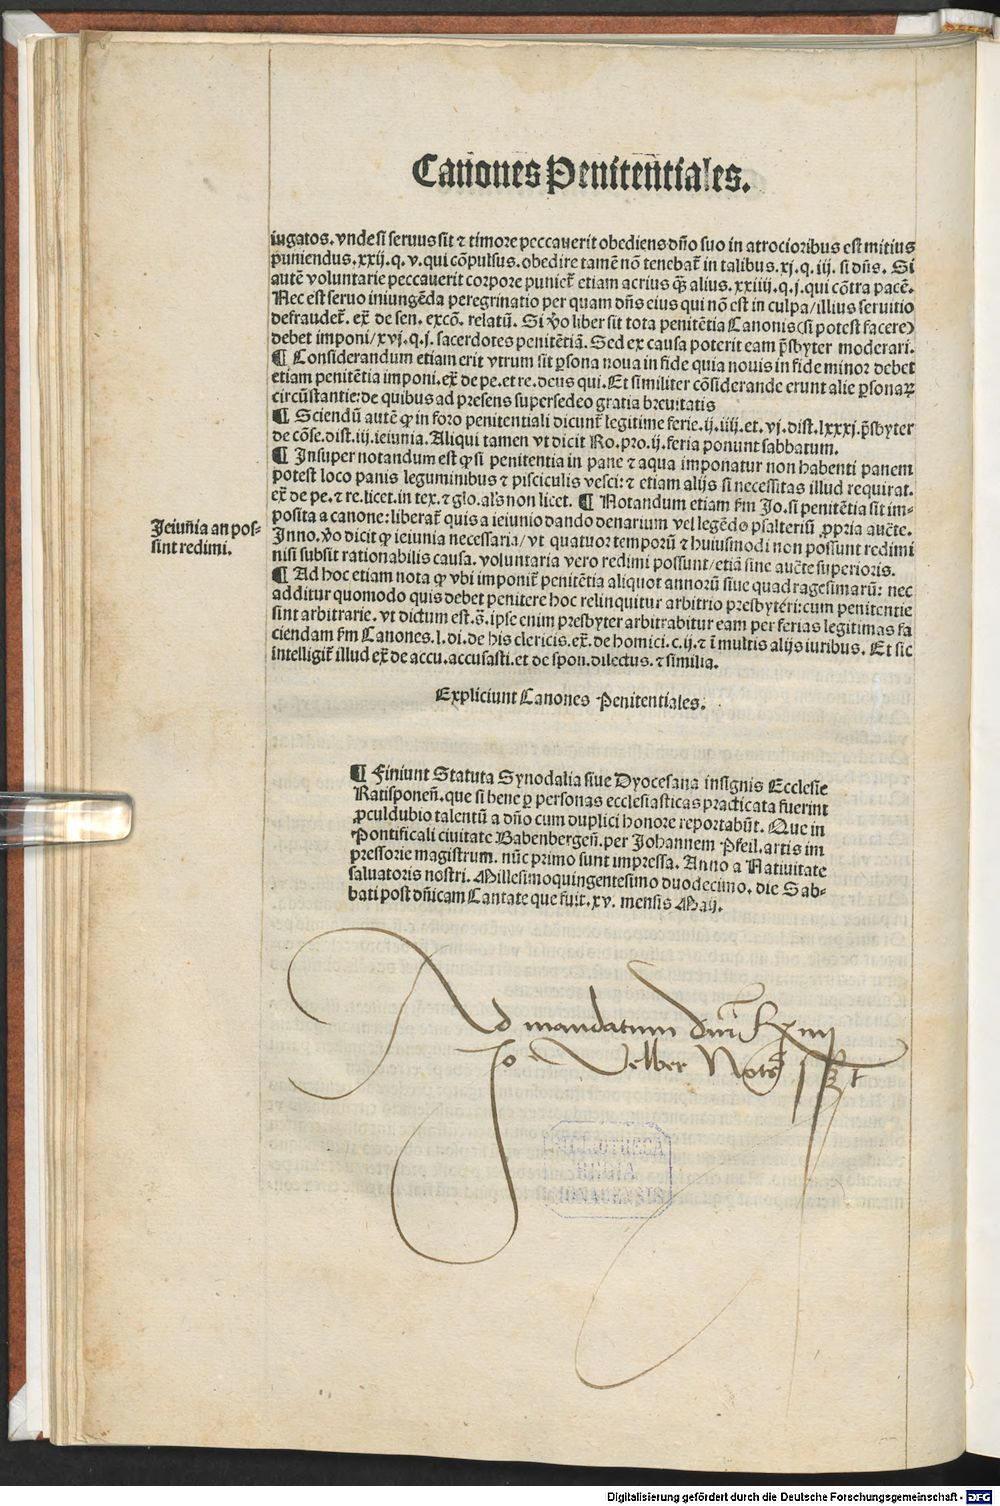 Canōnes Penitēntiales.
iugatos. vnde si seruus sit ⁊ timore peccauerit obediens dño suo in atrocioribus est mitius
puniendus. xxij. q. v. qui cōpulsus. obedire tamē nō tenebat᷑ in talibus. xj. q. iij. si dñs. Si
autē voluntarie peccauerit corpore puniet᷑ etiam acrius q̄ȝ alius. xxiiij. q. j. qui cōtra pacē.
Nec est seruo iniungēda peregrinatio per quam dñs eius qui nō est in culpa / illius seruitio
defraudet᷑. ex̄ de sen. excō. relatū. Si v̊o liber sit tota penitētia Canonis (si potest facere)
debet imponi / xvj. q. j. sacerdotes penitētiā. Sed ex causa poterit eam p̄sbyter moderari.
¶ Considerandum etiam erit vtrum sit ꝑsona noua in fide quia nouis in fide minor debet
etiam penitētia imponi. ex̄ de pe. et re. deus qui. Et similiter cōsiderande erunt alie ꝑsonaꝝ
circūstantie: de quibus ad presens supersedeo gratia breuitatis
¶ Sciendū autē ꝙ in foro penitentiali dicunt᷑ legitime ferie. ij. iiij. et. vj. dist. lxxxj. p̄sbyter
de cōse. dist. iij. ieiunia. Aliqui tamen vt dicit Ro. pro. ij. feria ponunt sabbatum.
¶ Insuper notandum est ꝙ si penitentia in pane ⁊ aqua imponatur non habenti panem
potest loco panis leguminibus ⁊ pisciculis vesci: ⁊ etiam alijs si necessitas illud requirat.
ex̄ de pe. ⁊ re. licet. in tex. ⁊ glo. al's non licet. ¶ Notandum etiam ẜm Jo. si penitētia sit im-
posita a canone: liberat᷑ quis a ieiunio dando denarium vel legēdo psalteriū ꝓpria aucte̅.
Inno. v̊o dicit ꝙ ieiunia necessaria / vt quatuor temporū ⁊ huiusmodi non possunt redimi
nisi subsit rationabilis causa. voluntaria vero redimi possunt / etiā sine aucte̅ superioris.
Jeiuñia an pos-
sint redimi.
¶ Ad hoc etiam nota ꝙ vbi imponit᷑ penitētia aliquot annorū siue quadragesimarū: nec
additur quomodo quis debet penitere hoc relinquitur arbitrio presbyteri: cum penitentie
sint arbitrarie. vt dictum est. s̄. ipse enim presbyter arbitrabitur eam per ferias legitimas fa
ciendam ẜm Canones. l. di. de his clericis. ex̄. de homici. c. ij. ⁊ ī multis alijs iuribus. Et sic
intelligit᷑ illud ex̄ de accu. accusasti. et de spon. dilectus. ⁊ similia.
Expliciunt Canones Penitentiales.
¶ Finiunt Statuta Synodalia siue Dyocesana insignis Ecclesie
Ratisponeñ. que si bene ꝑ personas ecclesiasticas practicata fuerint
ꝓculdubio talentū a dño cum duplici honore reportabūt. Que in
Pontificali ciuitate Babenbergeñ. per Johannem Pfeil. artis im
pressorie magistrum. nūc primo sunt impressa. Anno a Natiuitate
saluatoris nostri. Millesimoquingentesimo duodecimo. die Sab-
bati post dñicam Cantate que fuit. xv. mensis Maij.
Ad mandatum
Jo Velber Not
BIBLIOTHECA
REGIA
MONACENSIS
Digitalisierung gefördert durch die Deutsche Forschungsgemeinschaft - DFG